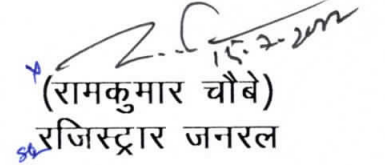 15-7-2022
(रामकुमार चौबे)
रजिस्ट्रार जनरल